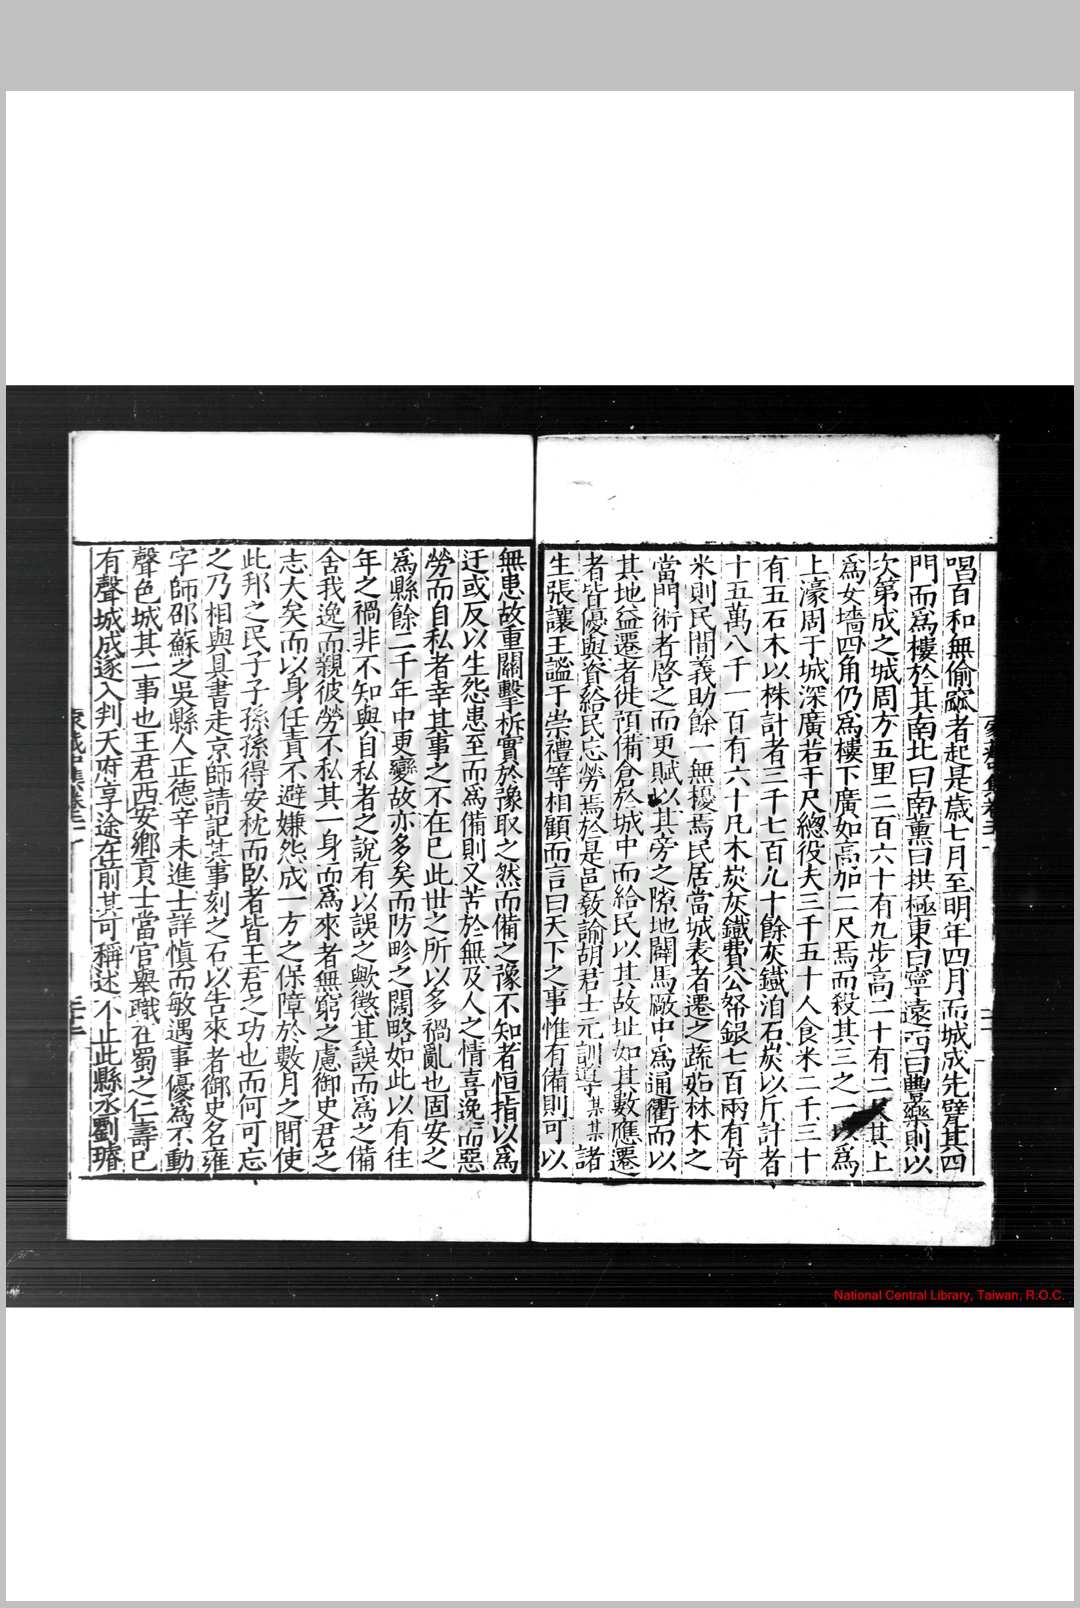 唱百和無偷窳者起是歲七月至明年四月而城成先甓其四
門而爲樓於其南北曰南薰曰拱極東曰寧遠西曰豐樂則以
次第成之城周方五里二百六十有九步高二十有二尺其上
爲女墻四角仍爲樓下廣如高加二尺焉而殺其三之一以爲
上濠周于城深廣若干尺總役夫三千五十人食米二千三十
有五石木以株計者三千七百九十餘灰鐵洎石炭以斤計者
十五萬八千一百有六十凡木炭灰鐵費公帑銀七百兩有奇
米則民間義助餘一無擾焉民居當城表者遷之蔬茹林木之
當門術者啓之而更賦以其旁之隙地闢馬廠中爲通衢而以
其地益遷者徙預備倉於城中而給民以其故址如其數應遷
者皆優與資給民忘勞焉於是邑敎諭胡君士元訓導某某諸
生張讓王謐于崇禮等相顧而言曰天下之事惟有備則可以
無患故重關擊柝實於豫取之然而備之豫不知者恒指以爲
迂或反以生怨患至而爲備則又苦於無及人之情喜逸而惡
勞而自私者幸其事之不在已此世之所以多禍亂也固安之
爲縣餘二千年中更變故亦多矣而防畛之闊略如此以有往
年之禍非不知與自私者之說有以誤之歟懲其誤而爲之備
舍我逸而親彼勞不私其一身而爲來者無窮之慮御史君之
志大矣而以身任責不避嫌怨成一方之保障於數月之間使
此邦之民子子孫孫得安枕而臥者皆王君之功也而何可忘
之乃相與具書走京師請記其事刻之石以告來者御史名雍
字師邵蘇之吳縣人正德辛未進士詳愼而敏遇事優爲不動
聲色城其一事也王君西安鄕貢士當官舉職在蜀之仁壽已
有聲城成遂入判天府享途在前其可稱述不止此縣丞劉璿